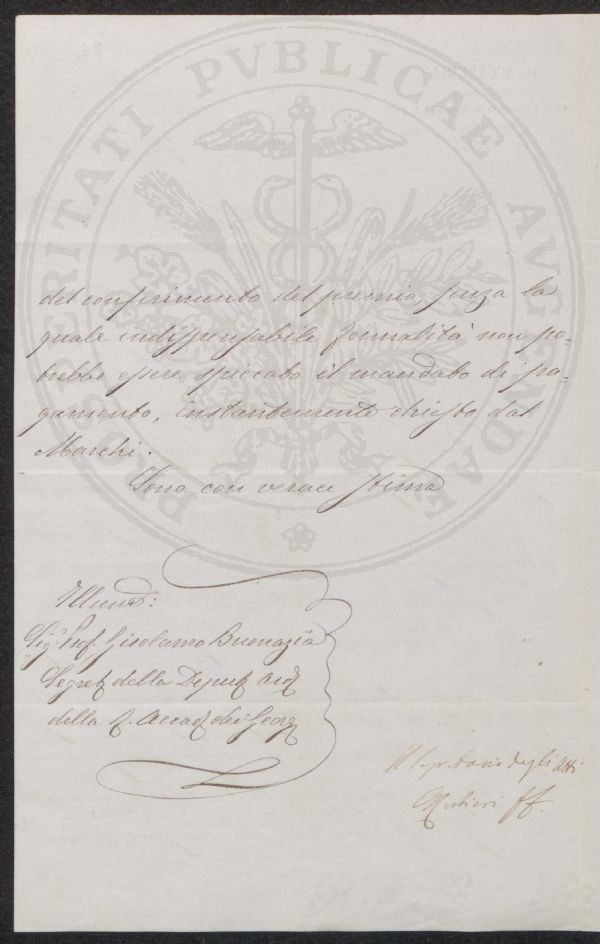 PROSPERITATI PVBLICAE AVGENDAE
del conferimento del premio, senza la
quale indispensabile formalità non po-
trebbe essere spiccato il mandato di pa-
gamento, instantemente chiesto dal
Marchi.
Sono con verace stima
Sig. Prof. Girolamo Buonazia
Segret della Deput ord
della R. Accad dei Georg
Il Segretario degli Atti
ff.